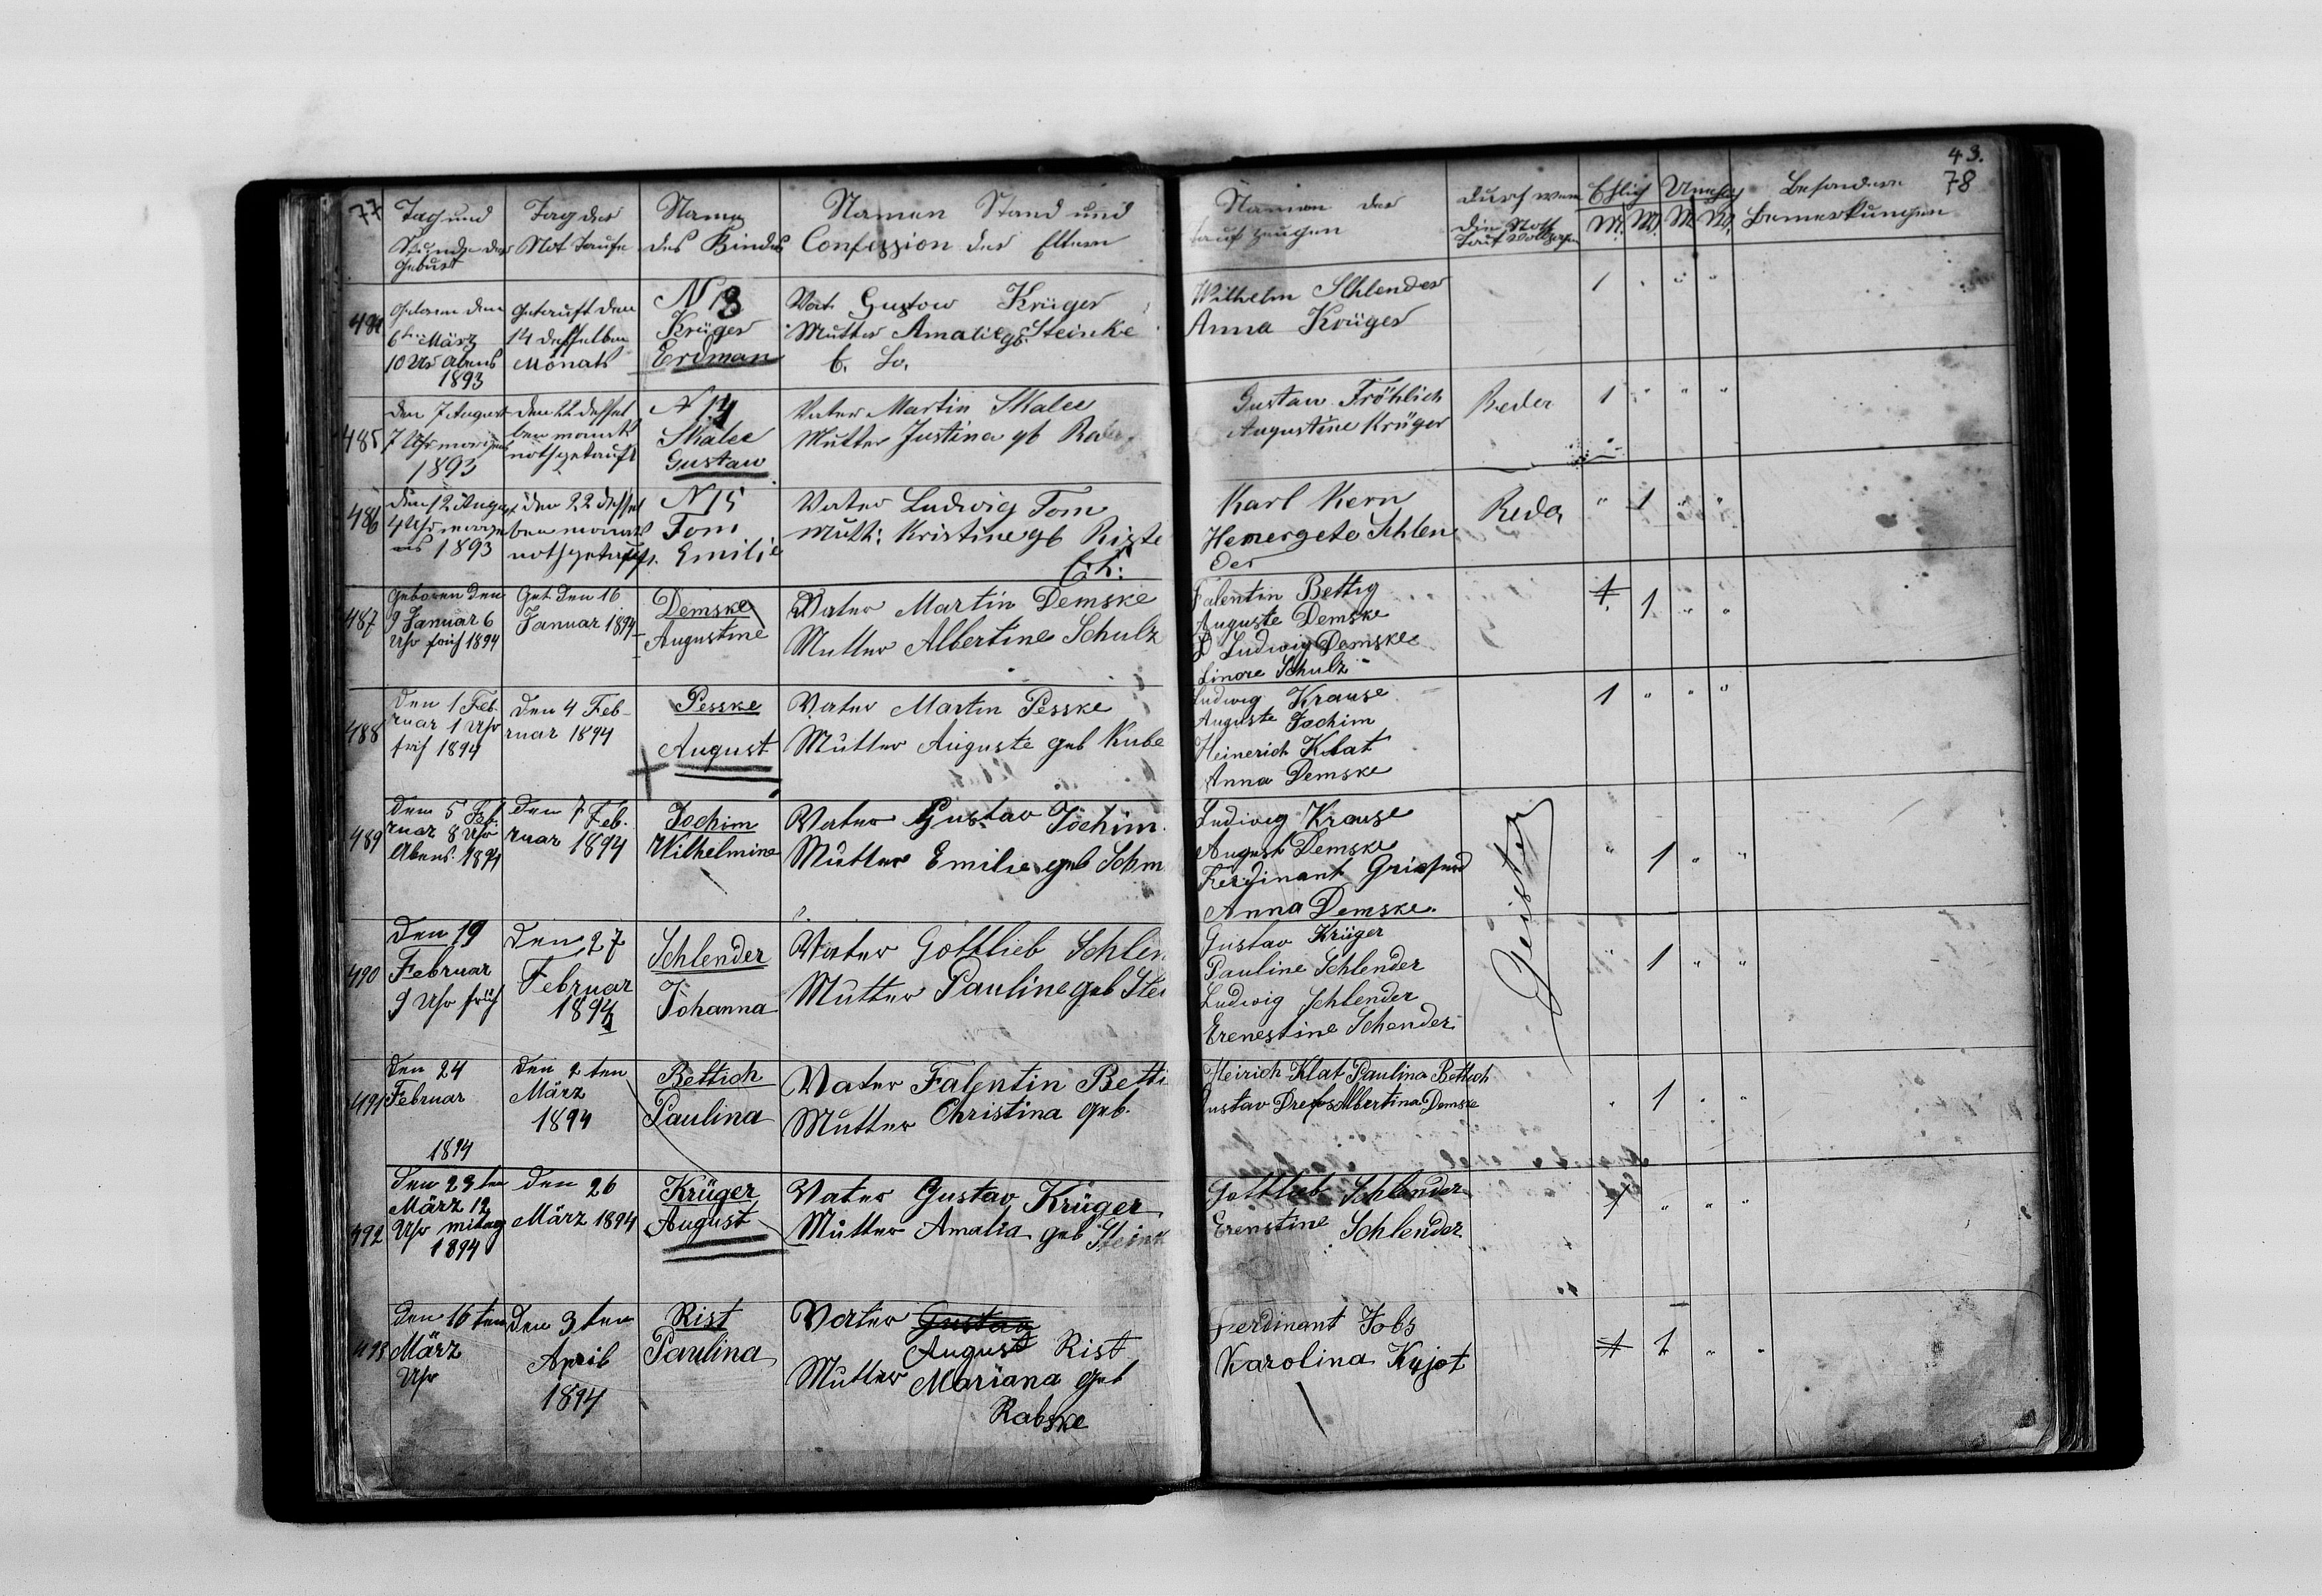 77
Tag und
Stunde der
Geburt
Tag der
Not Taufe
Name
des Kindes
Namen Stand und
Confession der Eltern
484
Geboren den
6ten März
10 Ur Abens
1893
Getauft den
14 desselben
Monats
N 13
Krüger
Erdman
Vat. Gustow Krüger
Mutter Amalie gb. Steinke
485
den 7 August
7 Uhr morgens
1893
den 22 dessel
ben monats
nothgetauft
N 14
Skalee
Gustaw
Vater Martin Skalee
Mutter Justina gb
486
den 12 Augu
4 Uhr morge
ns 1893
den 22 dessel
ben monats
nothgetauft.
N 15
Tom
Emilie
Vater Ludwig Tom
Muth: Kristine gb Riste
487
Geboren den
9 Januar 6
Uhr früh 1894
Get den 16
Januar 1894
Demske
Augustine
Vater Martin Demske
Mutter Albertine Schulz
488
den 1 Feb
ruar 1 Uhr
früh 1894
den 4 Feb-
ruar 1894
Pesske
August
Vater Martin Pesske
Mutter Auguste geb Kube
489
den 5 Feb.
ruar 8 Uhr
Abens 1894
den 7 Feb.
ruar 1894
Jochim
Wilhelmine
Vater Gustav Jochim.
Mutter Emilie geb Schm
490
den 19
Februar
9 Uhr früh
den 27
Februar
1894
Schlender
Johanna
Vater Gottlieb Schlen
Mutter Pauline geb Stei
491
den 24
Februar
1894
den 2 ten
März
1894
Bettich
Paulina
Vater Falentin Betti
Mutter Christina geb.
492
den 23 ten
März 12
Uhr mitag
1894
den 26
März 1894
Krüger
August
Vater Gustav Krüger
Mutter Amalia geb Steink
493
den 16 ten
März
Uhr
den 3 ten
April
1894
Rist
Paulina
Vater Gustav
August Rist
Mutter Mariana geb
Rabske
43.
78
Namen der
Taufzeugen
durch wem
die Noth
Tauf vollzogen
Ehlich
Unehlich
M. W. M. W.
Besondere
Bemerkungen
Wilhelm Schlender
Anna Krüger
1 " " "
Gustaw Fröhlich
Augustine Krüger
Reder
1 " " "
Karl Kern
Henergete Schlen
der
Reda
" 1 " "
Falentin Bettig
Auguste Demske
Ludwig Demske
Linore Schulz
1 1 " "
Ludwig Krause
Auguste Jachim
Heinerich Klat
Anna Demske
1 " " "
Ludwig Krause
August Demske
Ferdinant
Anna Demske.
" 1 " "
Gustav Krüger
Pauline Schlender
Ludwig Schlender
Erenestine Schender
" 1 " "
Heirich Klat Paulina Bettich
Gustav Albertina Demske
" 1 " "
Gottlieb Schlender
Erenstine Schlender
1 " " "
Ferdinant Jobs
Karolina Kujot
1 1 " "